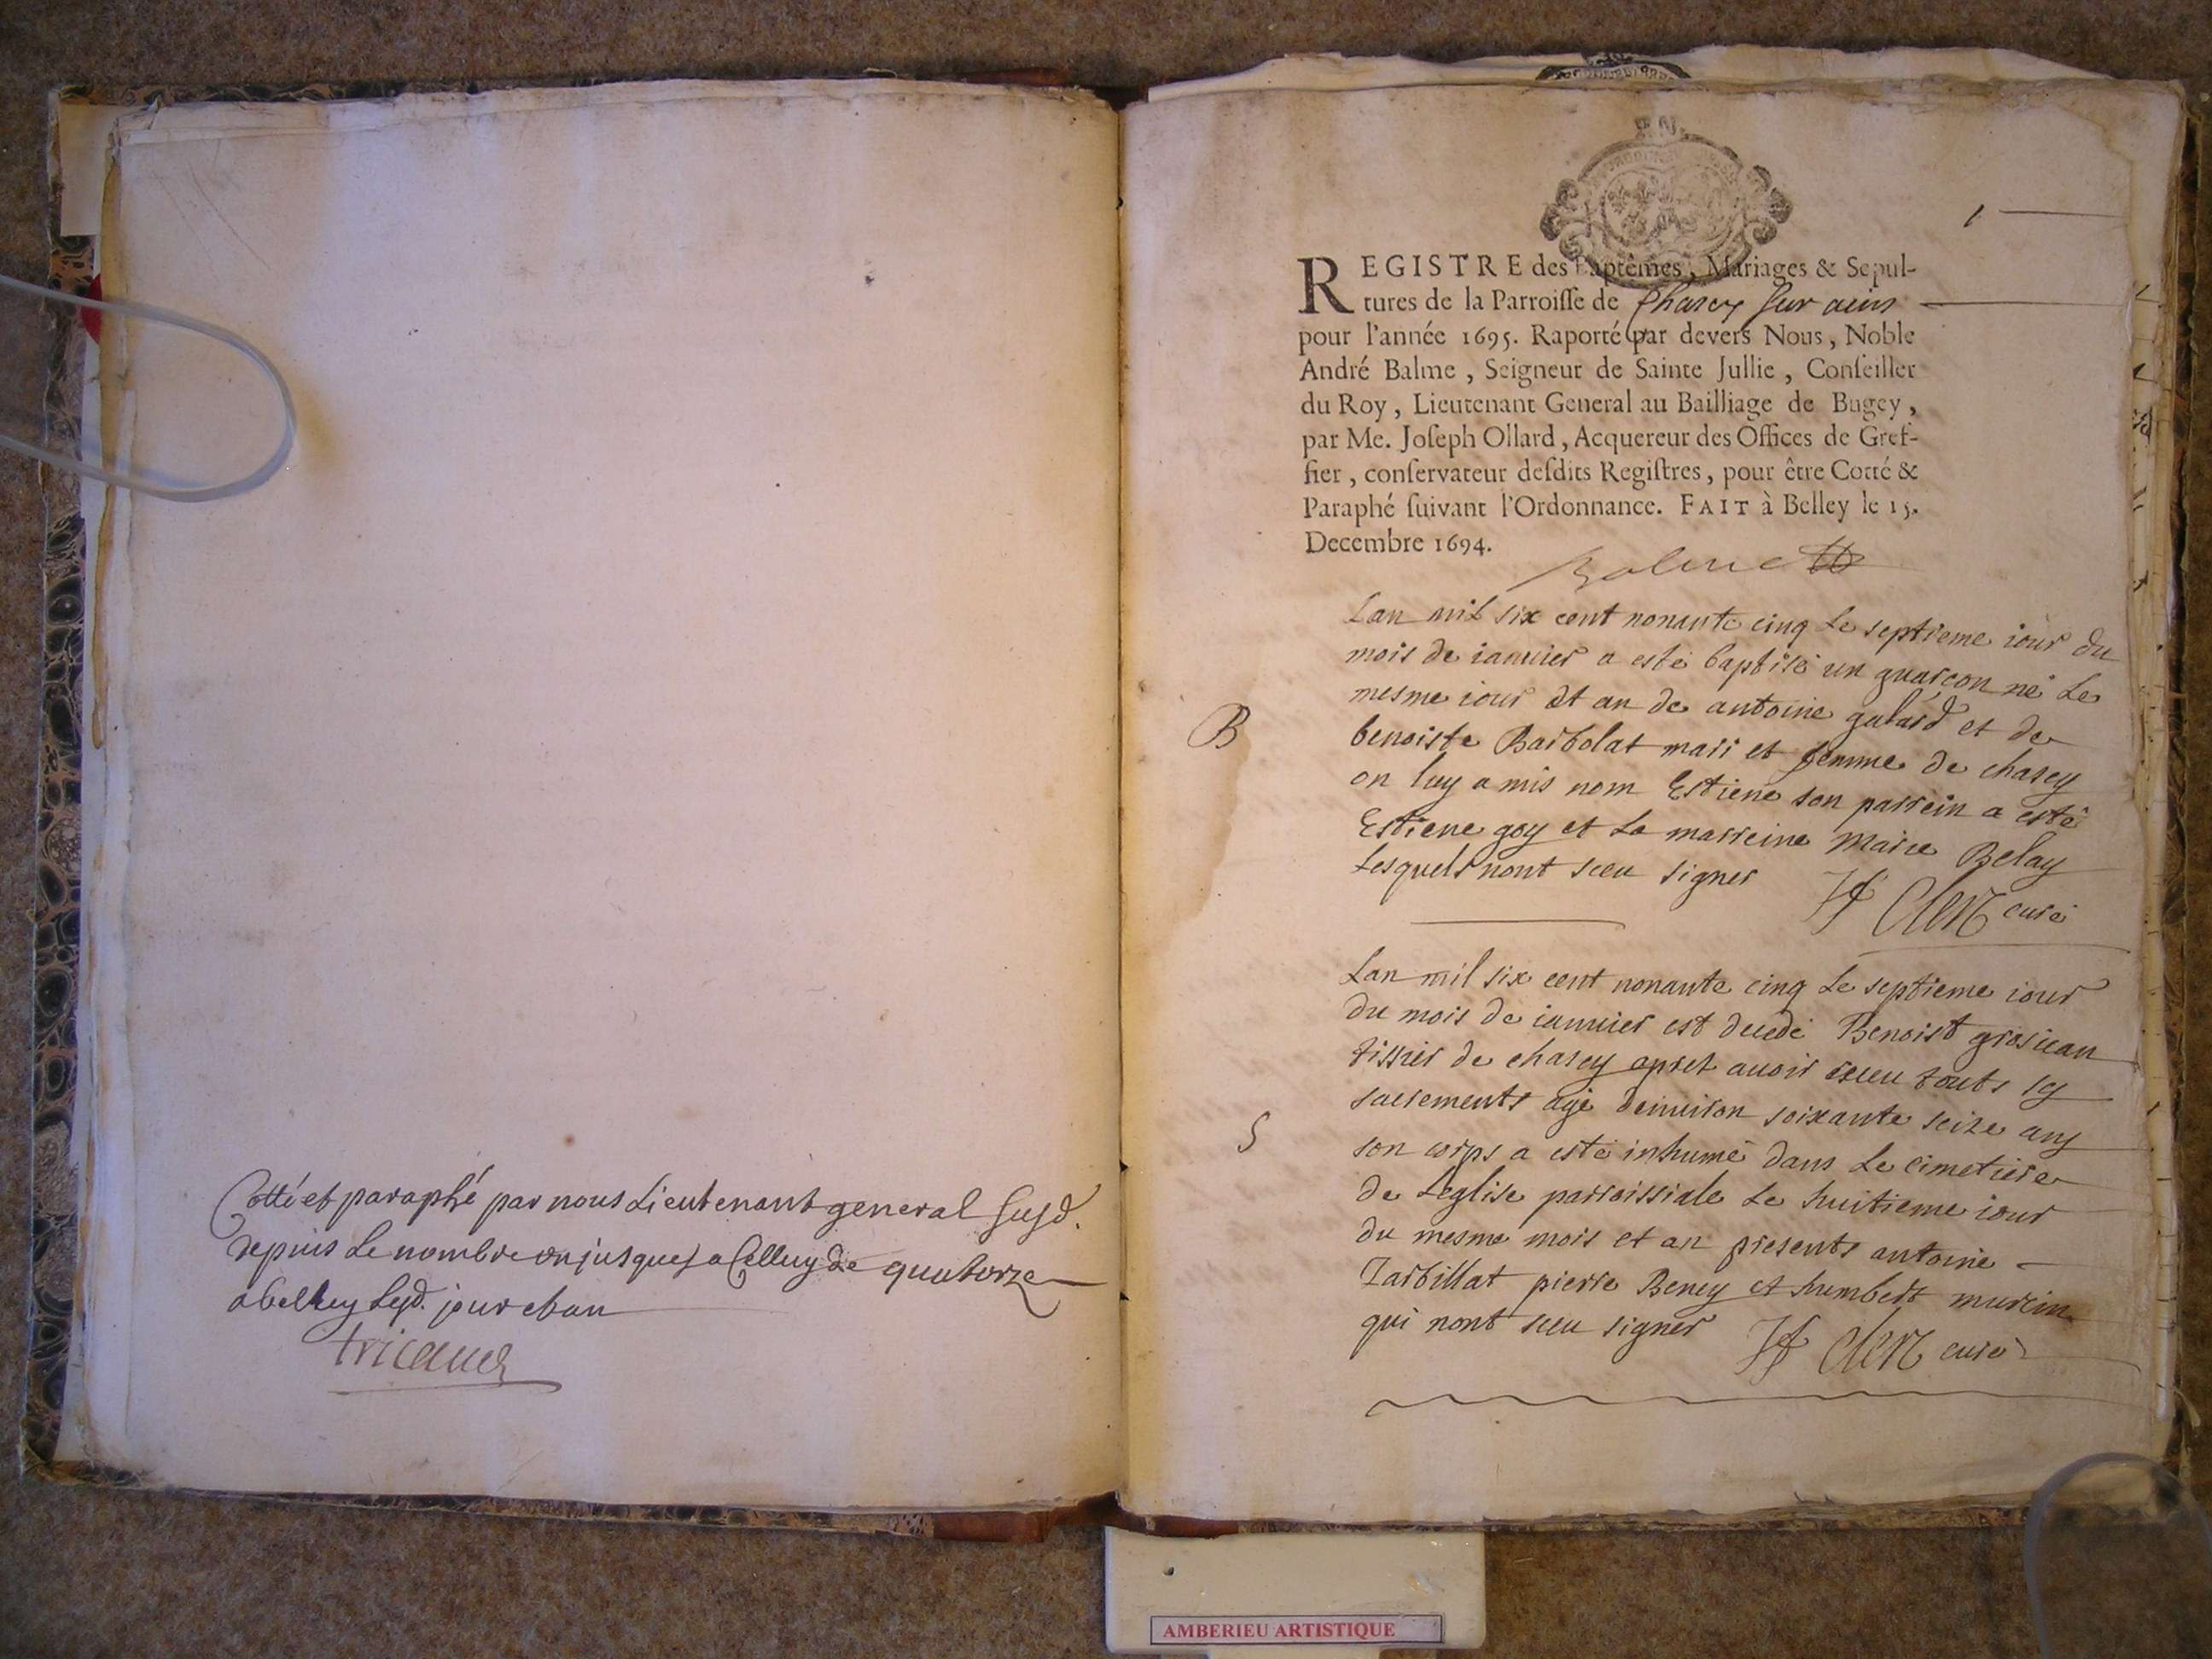 Cotté et paraphé par nous Lieutenant general susd.
depuis Le nombre un jusques a Celluy de quatorze
a belley Lesd. jour et an
tricaud
1
REGISTRE des Baptêmes, Mariages & Sepul-
tures de la Parroisse de Chasey sur ains
pour l'année 1695. Raporté par devers Nous, Noble
André Balme, Seigneur de Sainte Jullie, Conseiller
du Roy, Lieutenant General au Bailliage de Bugey,
par Me. Joseph Ollard, Acquereur des Offices de Gref-
fier, conservateur desdits Registres, pour être Cotté &
Paraphé suivant l'Ordonnance. FAIT à Belley le 15.
Decembre 1694.
Balme
Lan mil six cent nonante cinq Le septieme iour du
mois de ianuier a esté baptisé un guarcon né Le
mesme iour et an de antoine galard et de
B
benoiste Barbolat mari et femme de chasey
on luy a mis nom Estiene son parrein a esté
Estiene goy et La marreine Marie Belay
Lesquels nont sceu signer
Clerc curé
Lan mil six cent nonante cinq Le septieme iour
du mois de ianuier est decedé Benoist grosiean
tissier de chasey apres auoir receu touts sa
sacrements agé denuiron soixante seize ans
S
son corps a esté inhumé dans Le cimetiere
de Leglise parroissiale Le huitieme iour
du mesme mois et an presents antoine
Tarbillat pierre Beney et humbert murcin
qui nont sceu signer
Clerc curé
AMBERIEU ARTISTIQUE